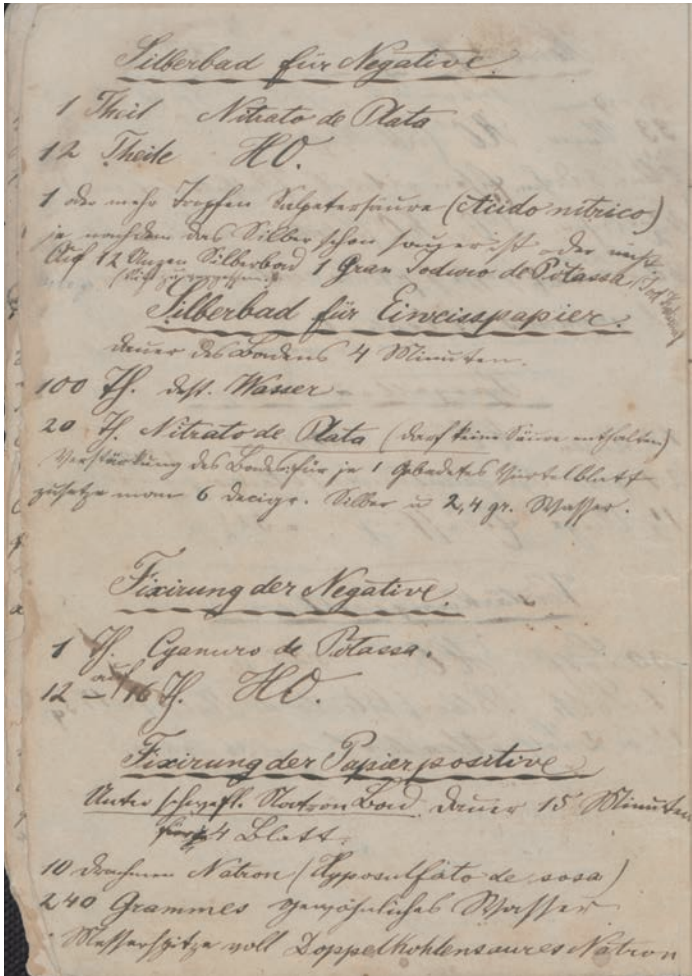 Silberbad für Negative.
1 Theil Nitrato de Plata
12 Theile HO.
1 oder mehr Tropfen Salpetersäure (Acido nitrico)
je nachdem das Silber schon sauer ist oder nicht
Auf 12 Unzen Silberbad 1 Gran Joduro de Potassa
Silberbad für Eiweisspapier.
Dauer des Badens 4 Minuten.
100 Th. dest. Wasser
20 Th. Nitrato de Plata (darf keine Säure enthalten)
Verstärkung des Bades: für je 1 gebadetes Viertelblatt
zusetze man 6 decigr. Silber u 2,4 gr. Wasser.
Fixirung der Negative.
1 Th. Cyanuro de Potassa.
auf
12 – 16 Th. HO.
Fixirung der Papierpositive
Unterschwefl. Natron Bad. Dauer 15 Minuten
für 4 Blatt.
10 Drachmen Natron (Hyposulfato de sosa)
240 Grammes gewöhnliches Wasser
Messerspitze voll Doppelkohlensaures Natron